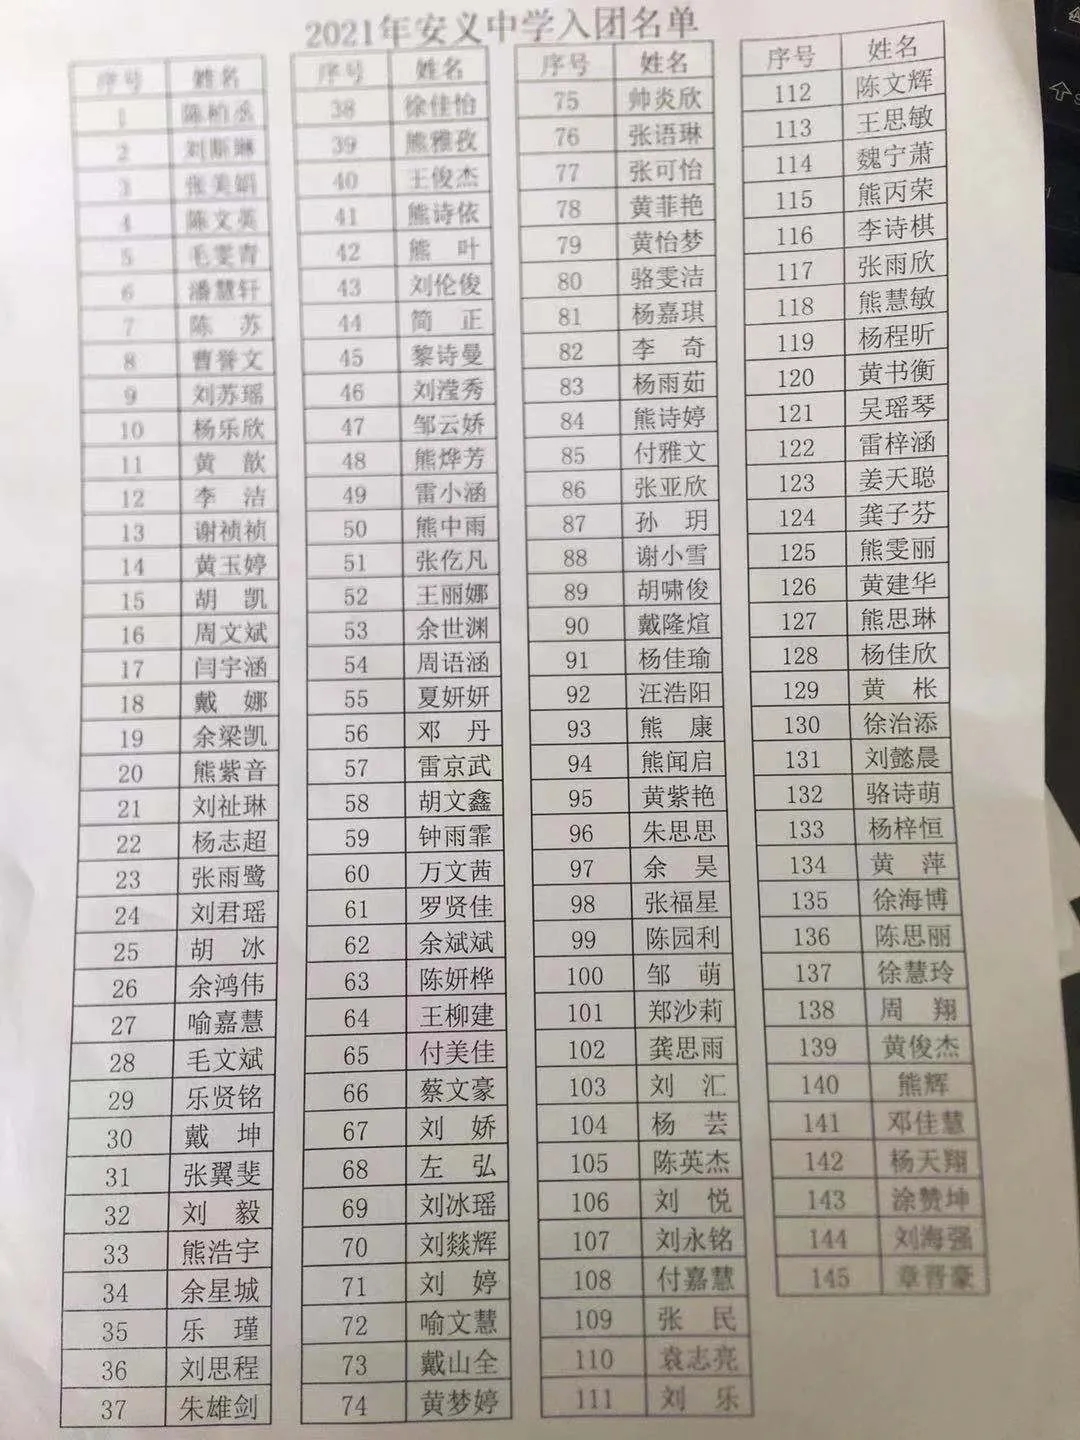 2021年安义中学入团名单
序号 姓名
1 陈柏丞
2 刘斯琳
3 张美娟
4 陈文英
5 毛雯青
6 潘慧轩
7 陈 苏
8 曹誉文
9 刘苏瑶
10 杨乐欣
11 黄 歆
12 李 洁
13 谢祯祯
14 黄玉婷
15 胡 凯
16 周文斌
17 闫宇涵
18 戴 娜
19 余梁凯
20 熊紫音
21 刘祉琳
22 杨志超
23 张雨鹭
24 刘君瑶
25 胡 冰
26 余鸿伟
27 喻嘉慧
28 毛文斌
29 乐贤铭
30 戴 坤
31 张翼斐
32 刘 毅
33 熊浩宇
34 余星城
35 乐 瑾
36 刘思程
37 朱雄剑
序号 姓名
38 徐佳怡
39 熊雅孜
40 王俊杰
41 熊诗依
42 熊 叶
43 刘伦俊
44 简 正
45 黎诗曼
46 刘滢秀
47 邹云娇
48 熊烨芳
49 雷小涵
50 熊中雨
51 张仡凡
52 王丽娜
53 余世渊
54 周语涵
55 夏妍妍
56 邓 丹
57 雷京武
58 胡文鑫
59 钟雨霏
60 万文茜
61 罗贤佳
62 余斌斌
63 陈妍桦
64 王柳建
65 付美佳
66 蔡文豪
67 刘 娇
68 左 弘
69 刘冰瑶
70 刘燚辉
71 刘 婷
72 喻文慧
73 戴山全
74 黄梦婷
序号 姓名
75 帅炎欣
76 张语琳
77 张可怡
78 黄菲艳
79 黄怡梦
80 骆雯洁
81 杨嘉琪
82 李 奇
83 杨雨茹
84 熊诗婷
85 付雅文
86 张亚欣
87 孙 玥
88 谢小雪
89 胡啸俊
90 戴隆煊
91 杨佳瑜
92 汪浩阳
93 熊 康
94 熊闻启
95 黄紫艳
96 朱思思
97 余 昊
98 张福星
99 陈园利
100 邹 萌
101 郑沙莉
102 龚思雨
103 刘 汇
104 杨 芸
105 陈英杰
106 刘 悦
107 刘永铭
108 付嘉慧
109 张 民
110 袁志亮
111 刘 乐
序号 姓名
112 陈文辉
113 王思敏
114 魏宁萧
115 熊丙荣
116 李诗棋
117 张雨欣
118 熊慧敏
119 杨程昕
120 黄书衡
121 吴瑶琴
122 雷梓涵
123 姜天聪
124 龚子芬
125 熊雯丽
126 黄建华
127 熊思琳
128 杨佳欣
129 黄 枨
130 徐治添
131 刘懿晨
132 骆诗萌
133 杨梓恒
134 黄 萍
135 徐海博
136 陈思丽
137 徐慧玲
138 周 翔
139 黄俊杰
140 熊辉
141 邓佳慧
142 杨天翔
143 涂赞坤
144 刘海强
145 章晋豪